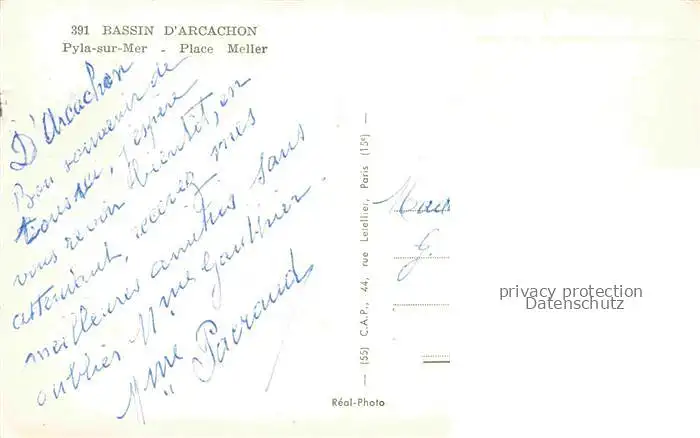 391 BASSIN D'ARCACHON
Pyla-sur-Mer - Place Meller
D'Arcachon
Bon souvenir de
tous, j'espère
vous revoir bientôt, en
attendant, recevez mes
meilleures amitiés sans
oublier Mme Gauthier.
Mme
(55) C.A.P., 44, rue Letellier, Paris (15e)
G.
privacy protection
Datenschutz
Réal-Photo